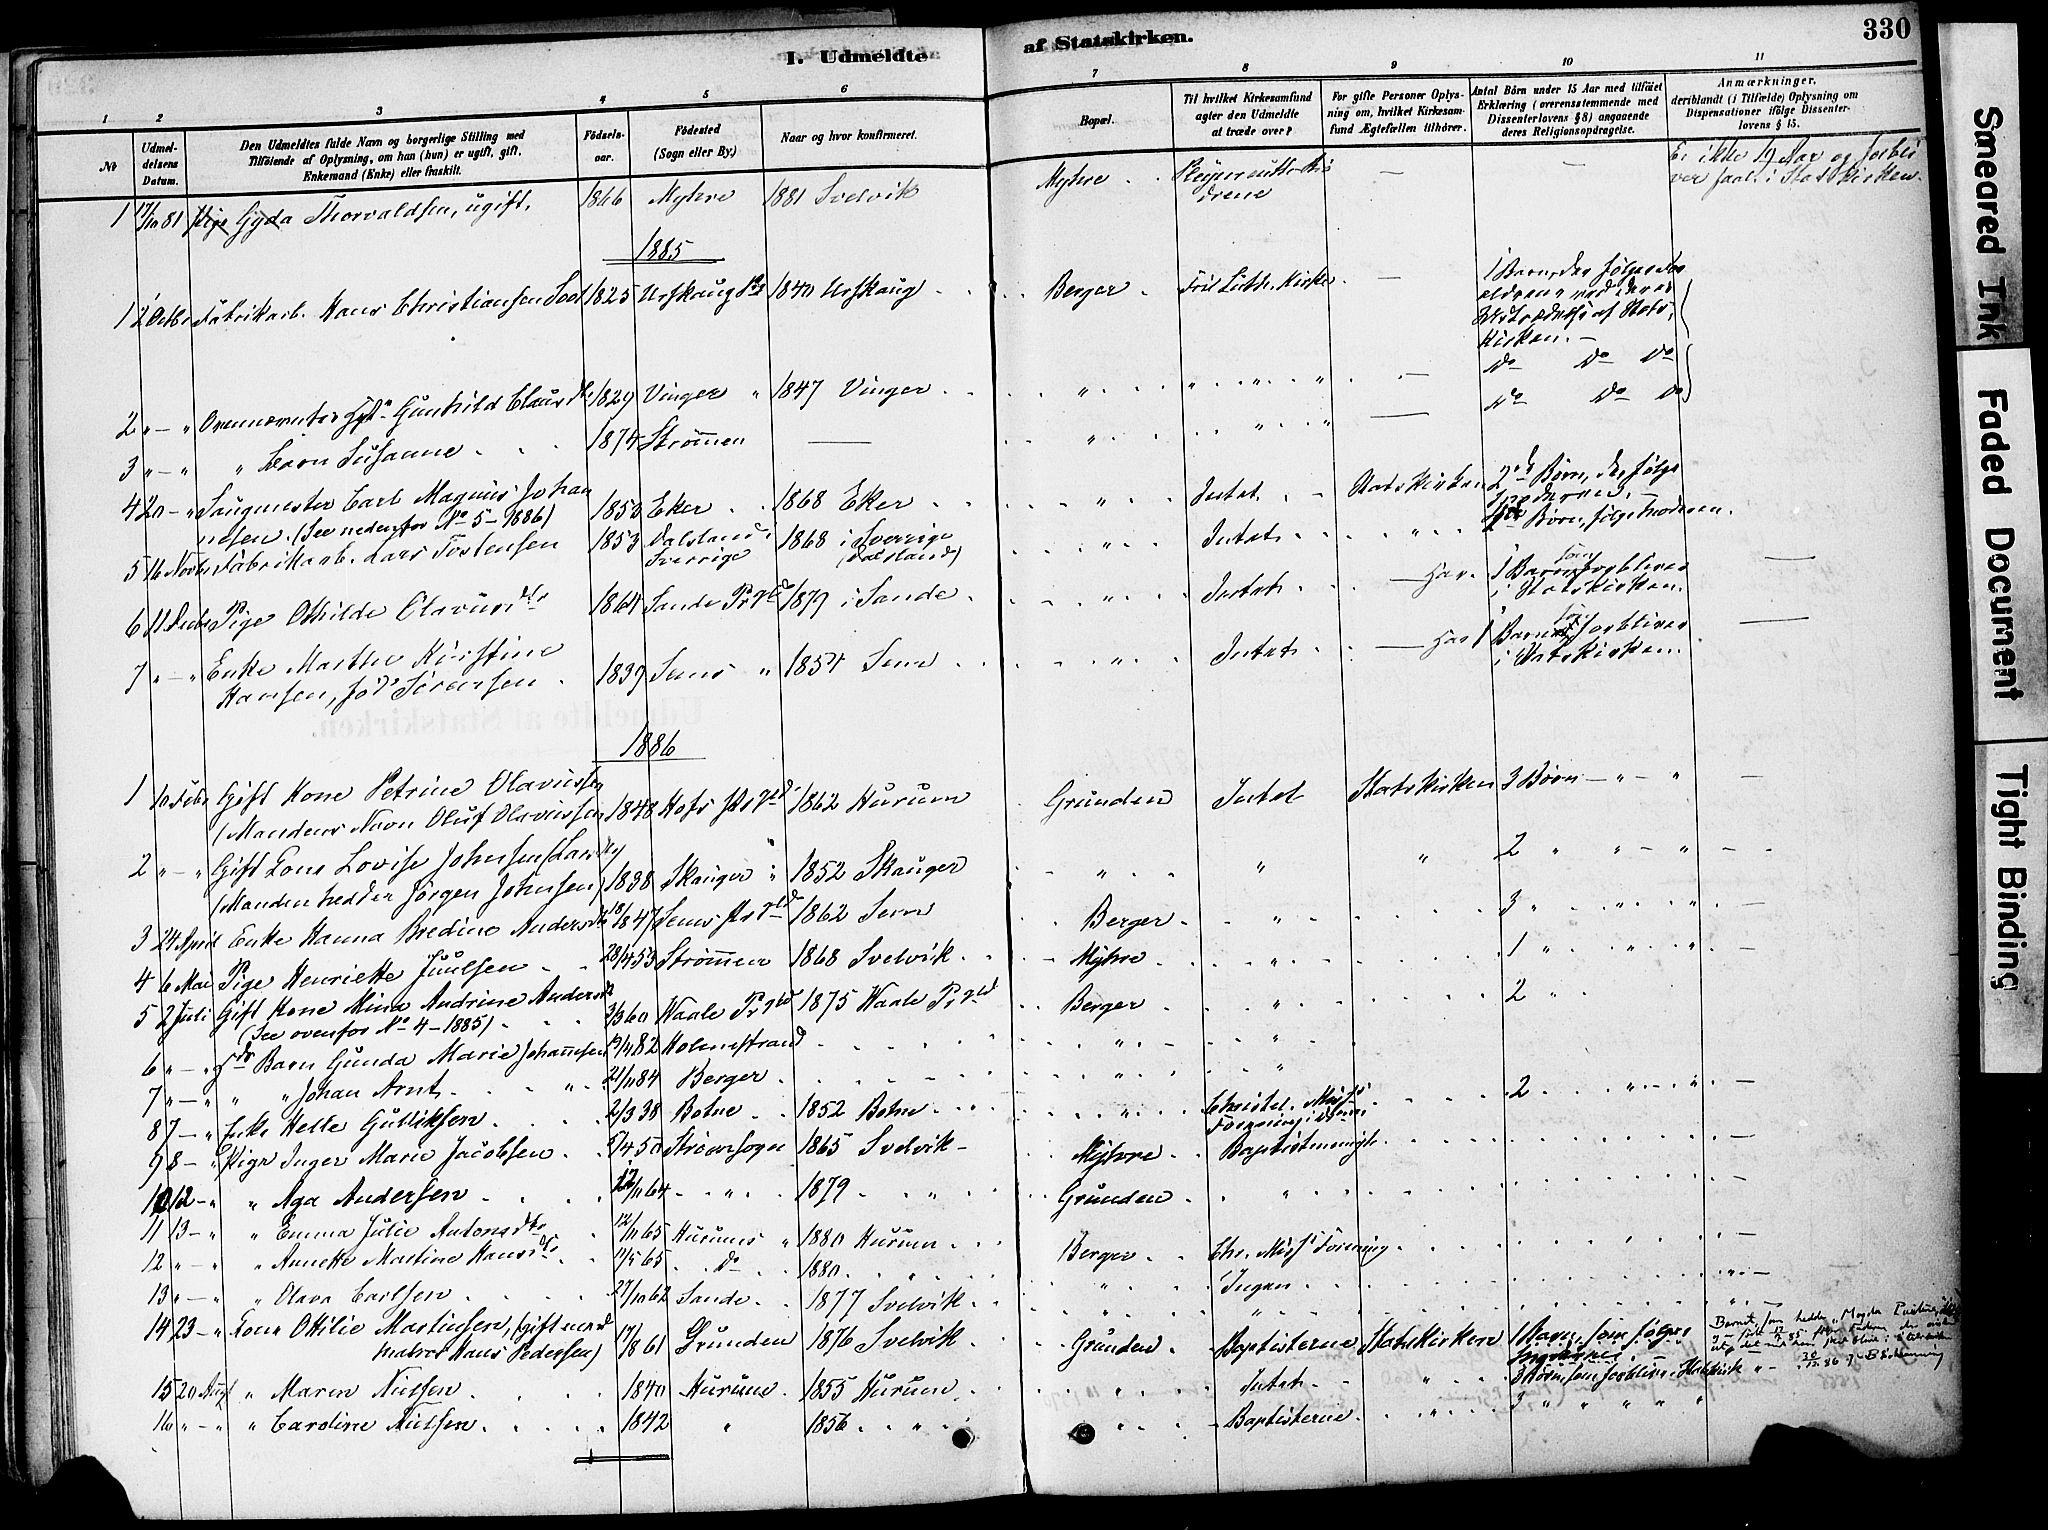 I. Udmeldte af Statskirken. 330
1 2 3 4 5 6 7 8 9 10 11
No
Udmeldelsens Datum.
Den Udmeldtes fulde Navn og borgerlige Stilling med Tilföiende af Oplysning, om han (hun) er ugift, gift, Enkemand (Enke) eller fraskilt.
Födselsaar.
Födested (Sogn eller By.)
Naar og hvor konfirmeret.
Bopæl.
Til hvilket Kirkesamfund agter den Udmeldte at træde over?
For gifte Personer Oplysning om, hvilket Kirkesamfund Ægtefællen tilhörer.
Antal Börn under 15 Aar med tilföiet Erklæring (overensstemmende med Dissenterlovens § 8) angaaende deres Religionsopdragelse.
Anmærkninger, deriblandt (i Tilfælde) Oplysning om Dispensationer ifölge Dissenterlovens § 15.
1 17/10 81 Pige Gyda Thorvaldsen, ugift. 1866 Myhre 1881 Svelvik Myhre — — Er ikke 19 Aar og forbliver i Statskirken.
1885
1 2 Octbr Fabrikarb. Hans Christiansen 1825 Urskaug 1840 Urskaug Berger Frie Luth. Kirke — 1 Barn, der følger Forældrene ved deres Udtrædelse af Statskirken. —
2 " — " Ovennævntes Gunhild Clausdtr 1829 Vinger " 1847 Vinger " " — do do do
3 " — " " Barn Susanne 1874 Strømmen — " " — do do do
4 20 — " Saugmester Carl Magnus Johannesen. (See nedenfor No 5 – 1886) 1853 Eker 1868 Eker " Intet Statskirken 2 Børn, der følge
5 16 Novbr Fabrikarb. Lars Tostensen 1853 Dalsland i Sverrige 1868 i Sverrige (Dalsland) " Intet " Børn, følge Moderen.
6 11 Decbr Pige Othilde Olavusdtr 1864 Sande Prgd 1879 i Sande " Intet — Har 1 Barn som forbliver i Statskirken. —
7 " — " Enke Marthe Kirstine Hansen, fød Sørensen 1839 Sems " 1854 Sem " Intet — Har 1 Barn som forbliver i Statskirken. —
1886
1 10 Febr Gift Kone Petrine Olavussen (Mandens Navn Oluf Olavussen) 1848 Hofs Prgd 1862 Hurum Grunden Intet Statskirken 3 Børn — " — " —
2 " — " Gift Kone Lovise Johnsen (Manden hedder Jørgen Johnsen) 1838 Skauger " 1852 Skauger " " " 2 " " — " —
3 24 April Enke Hanna Bredine Andersdtr 1847 Sems Prgd 1862 Sem Berger " 3 " " " —
4 6 Mai Pige Henriette Juulsen 28/4 53 Strømmen 1868 Svelvik Myhre " 1 " " " —
5 2 Juli Gift Kone Mina Andrine Andersdtr (See ovenfor No 4 – 1885) 3/3 60 Waale Prgd 1875 Waale Prgd Berger " 2 "
6 " — " do Barn Gunda Marie Johannesen 82 Holmestrand " "
7 " — " " " Johan Arnt " 21/11 84 Berger " "
8 7 — " Enke Helle Gulliksen 2/3 38 Botne 1852 Botne " Christel. Miss. Forening i 2 " " —
9 8 — " Pige Inger Marie Jacobsen 4 50 Strømsogn 1865 Svelvik Myhre Baptistmenigh. —
10 12 — " " Aga Andersen 12/11 64 " 1879 " Grunden " —
11 13 — " " Emma Julie Antonsdtr 12/11 65 Hurums " 1880 Hurum Berger Chr. Miss. Forening —
12 " — " " Annette Martine Hansdtr 5 65 do 1880 " " Ingen —
13 " — " " Olava Carlsen 27/10 62 Sande 1877 Svelvik " " " —
14 23 — " Kone Ottilie Martinsen, (gift med Matros Hans Pedersen) 8 61 Grunden 1876 Svelvik Grunden Baptisterne Statskirken 1 Barn, som følger Barnet, som hedder Magda
15 20 Augt " Maren Nielsen 1840 Hurum 1855 Hurum " Intet " 3 Børn, som forblive i Statskirk "
16 " — " " Caroline Nielsen 1842 " 1856 " " Baptisterne " 3 " " " "
Smeared Ink
Faded Document
Tight Binding